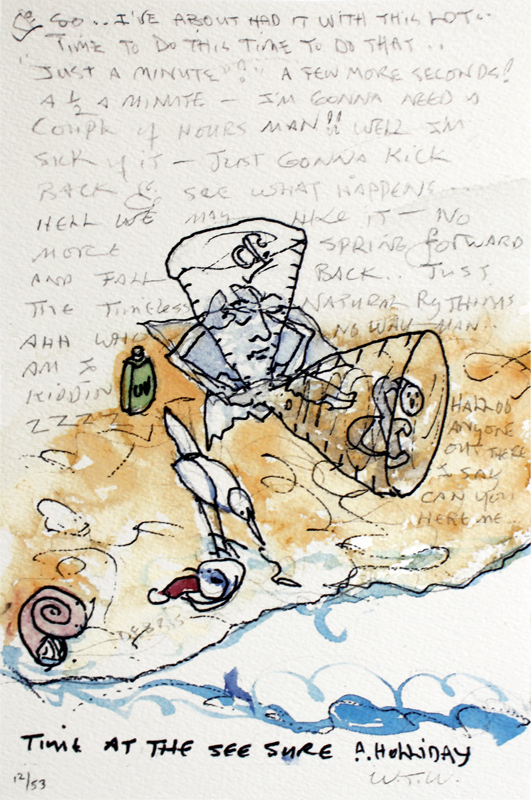 SO.. I'VE ABOUT HAD IT WITH THIS LOT..
TIME TO DO THIS TIME TO DO THAT..
"JUST A MINUTE"?" A FEW MORE SECONDS!
A ½ A MINUTE – I'M GONNA NEED A
COUPLE of HOURS MAN!! WELL I'M
SICK of IT – JUST GONNA KICK
BACK & SEE WHAT HAPPENS...
HELL WE MAY LIKE IT – NO
MORE SPRING forward
AND FALL BACK.. JUST
THE TIMELESS NATURAL RYTHMS
AHH WHO NO WAY MAN..
AM I
KIDDIN
ZZZZ
UV
HALLOO
ANYONE
OUT THERE
I SAY
CAN YOU
HERE ME...
DEBRIS
TIME AT THE SEE SURE A. HOLLIDAY
12/53
W.T.W.